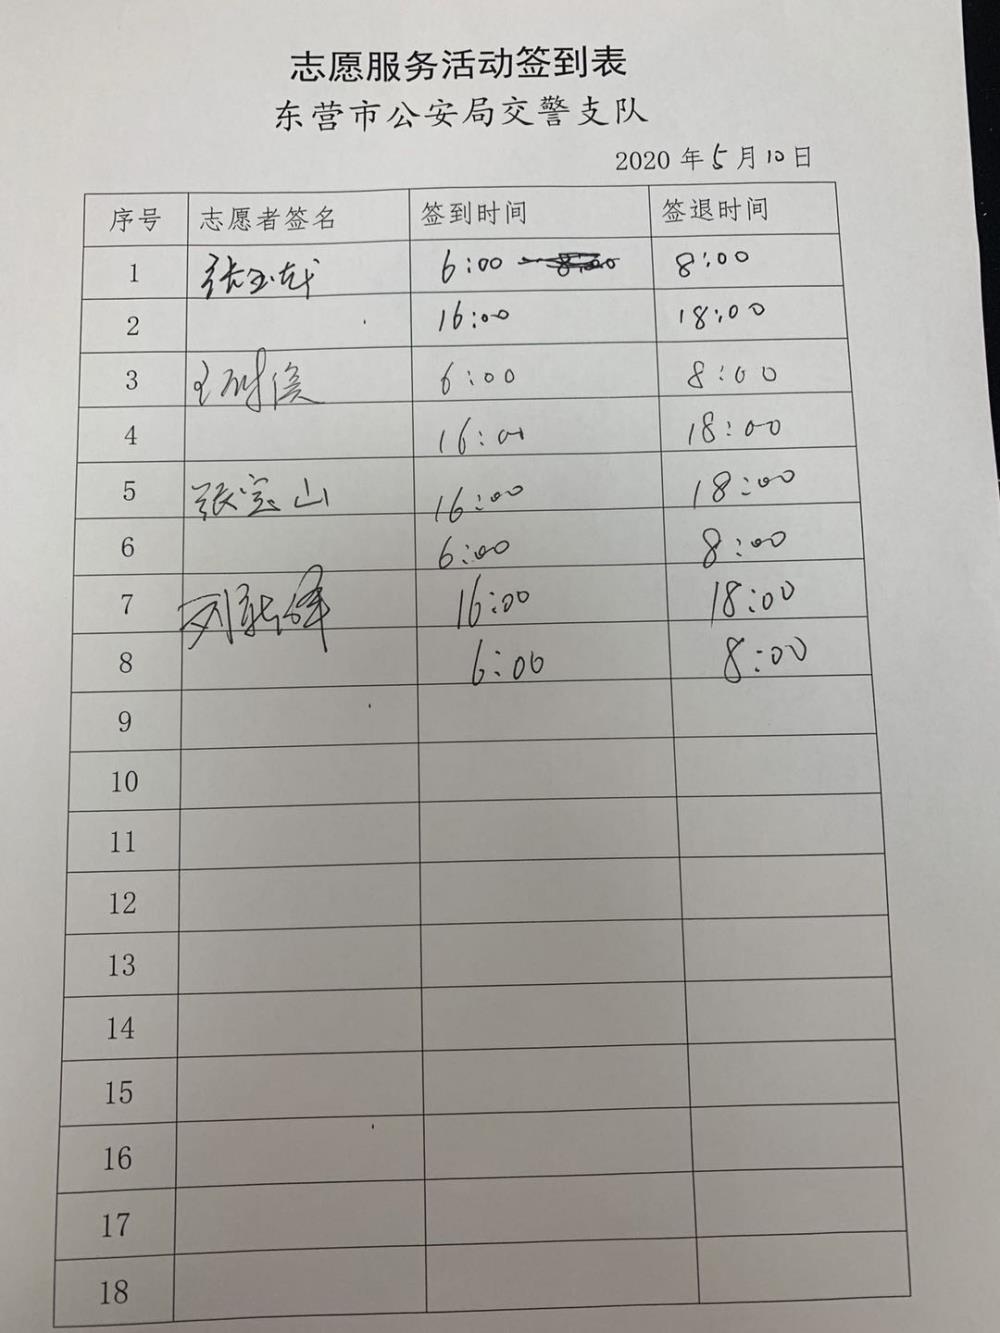 志愿服务活动签到表
东营市公安局交警支队
2020 年 5 月 10 日
序号 志愿者签名 签到时间 签退时间
1 张玉 6:00 8:00
2 16:00 18:00
3 王 6:00 8:00
4 16:00 18:00
5 张宝山 16:00 18:00
6 6:00 8:00
7 刘新锋 16:00 18:00
8 6:00 8:00
9
10
11
12
13
14
15
16
17
18